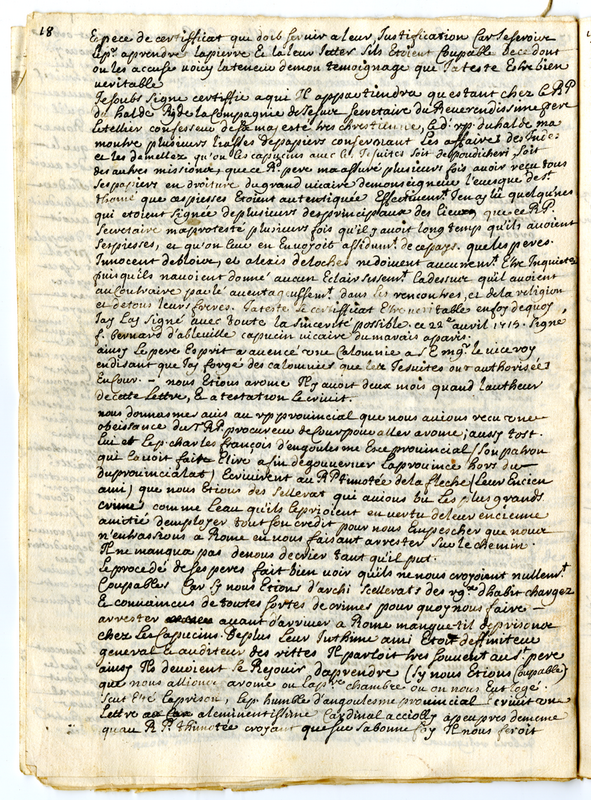 18
Espece de certifficat que doit servir a leur Justification Car se seroire
le pr. aprendre la pierre Et la leur Jetter sils Etoient Coupable de ce dont
on les accuse voicy la teneur de mon temoignage que J'ateste Estre bien
veritable
Je soubs signe certiffie a qui Il appartiendra qu'estant chez le R P
du halde Rx de la Compagnie de Jesus secretaire du Reverendissime pere
Letellier confesseur de sa majesté tres chrestienne, le d. r p. du halde ma
montré plusieurs liasses de papiers concernant les affaires des Indes
et les demellez qu'on les capucins avec les Jesuites soit de poudicheri, soit
des autres missions, que ce Rd pere m'a assuré plusieurs fois avoir reçu tous
ses papiers en droiture du grand vicaire de monseigneur l'evesque de st
thomé que ces piesses Etoient autentiquée Effectivemt J'en ay lû quelqu'unes
qui etoient signée de plusieurs des principaux des lieux que ce R P.
Secretaire m'a protesté plusieurs fois qu'il y avoit long temps qu'ils avoient
ses piesses, et qu'on leur en Envoyoit assidumt. de ce pays. que les peres
Innocent de bloire, et alexis de loches ne doivent aucunemt. Etre Inquietez
puis qu'ils n'avoient donné aucun Eclaircissemt. la dessus qu'il avoient
au Contraire parlé avantageussemt. dans les rencontres, et de la religion
et de tous leurs freres. J'ateste le certifficat Etre veritable en foy de quoy
J'ay Les signé avec toute la sincerité possible. ce 22e avril 1715. Signe
f. bernard d'ableville capucin vicaire du marais a paris.
ainsy le pere Esprit a avencé une Calomnie a S. Emg. le viceroy
en disant que J'ay forgé des calomnies que les Jesuites ont authorisée
En Cour. – nous Etions a rome Il y avoit deux mois quand l'autheur
de cette lettre, & atestation le crivit.
nous donnasmes avis au rp provincial que nous avions reçu une
obeissance du T.R.P. procureur de Cour pour aller a rome; aussy tost.
lui et le p. charles françois d'engoulesme Exce provincial (son patron
qui l'avoit faite Elire afin de gouverner la province hors du
du provincialat) Ecrivirent au R.P. timotée de la fleche (leur Encien
ami) que nous Etions des sellerat qui avions bu les plus grands
crime comme l'eau qu'ils le prioient en vertu de leur encienne
amitié d'employer tout son credit pour nous Empecher que nous
n'entrassions a Rome en nous faisant arrester sur le chemin
Il ne manqua pas de nous decrier tant qu'il put.
Le procedé de ses peres fait bien voir qu'ils ne nous croyoient nullemt.
Coupables Car sy nous Etions d'archi scellerats des d'habit changez
Et convaincus de toutes sortes de crimes pour quoy nous faire –
arrester avant d'arriver a Rome manque-t-il de prison
chez les Capucins. De plus leur Inthime ami Etoit deffiniteur
general & auditeur des rittes Il parloit tres souvent au st pere
ainsy Ils devoient se Rejouir d'aprendre (sy nous Etions Coupable)
que nous allions a rome ou la pre chambre ou on nous Eut logé
seut Eté la prison, le p humble d'angoulesme provincial Ecrivit une
lettre a l'eminentissime Cardinal acciolly a peu pres de meme
qu'au R P. thimotée croyant que sur sa bonne foy Il nous feroit